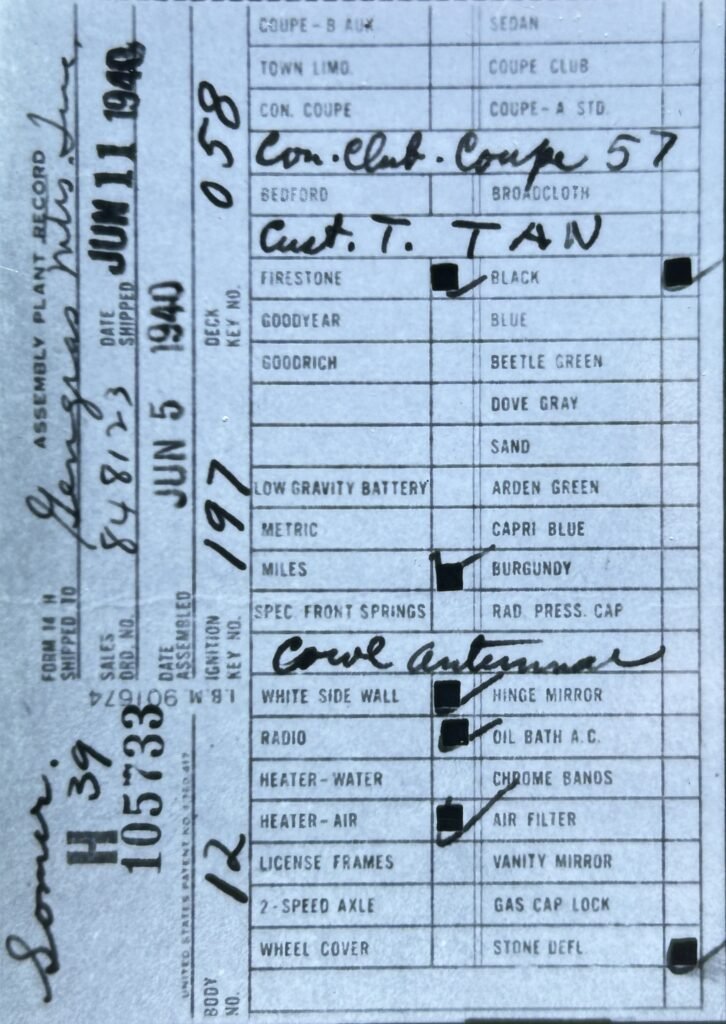 ASSEMBLY PLANT RECORD
FORM 14 H
SHIPPED TO Gengras Mtrs. Inc.
SALES ORD. NO. 848123 DATE SHIPPED JUN 11 1940
DATE ASSEMBLED JUN 5 1940
IGNITION KEY NO. 197 DECK KEY NO. 058
Somer.
H 39
105733
I.B.M 901674
UNITED STATES PATENT NO.
BODY NO. 12
COUPE-B AUX SEDAN
TOWN LIMO. COUPE CLUB
CON. COUPE COUPE-A STD.
Con. Club. Coupe 57
BEDFORD BROADCLOTH
Cust. T. TAN
FIRESTONE BLACK
GOODYEAR BLUE
GOODRICH BEETLE GREEN
DOVE GRAY
SAND
LOW GRAVITY BATTERY ARDEN GREEN
METRIC CAPRI BLUE
MILES BURGUNDY
SPEC FRONT SPRINGS RAD. PRESS. CAP
Cowl antennae
WHITE SIDE WALL HINGE MIRROR
RADIO OIL BATH A.C.
HEATER-WATER CHROME BANDS
HEATER-AIR AIR FILTER
LICENSE FRAMES VANITY MIRROR
2-SPEED AXLE GAS CAP LOCK
WHEEL COVER STONE DEFL